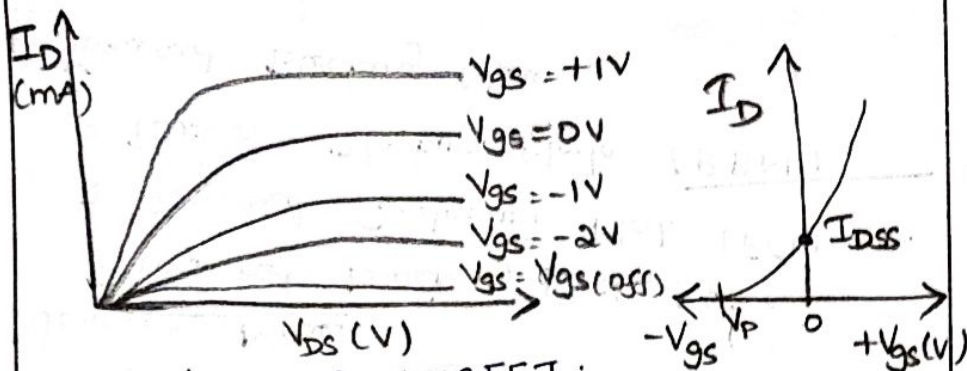 I_D
(mA)
Vgs = +1V
Vgs = 0V
Vgs = -1V
Vgs = -2V
Vgs = Vgs(off)
V_DS (V)
I_D
I_DSS
-Vgs
V_P
0
+Vgs(V)